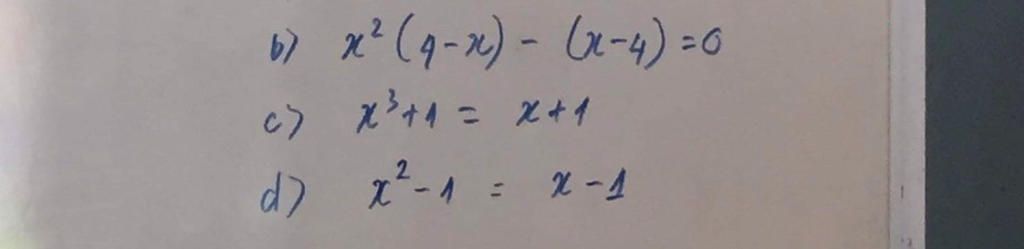 b) x² (4-x) - (x-4) = 0
c) x³+1 = x+1
d) x²-1 = x-1